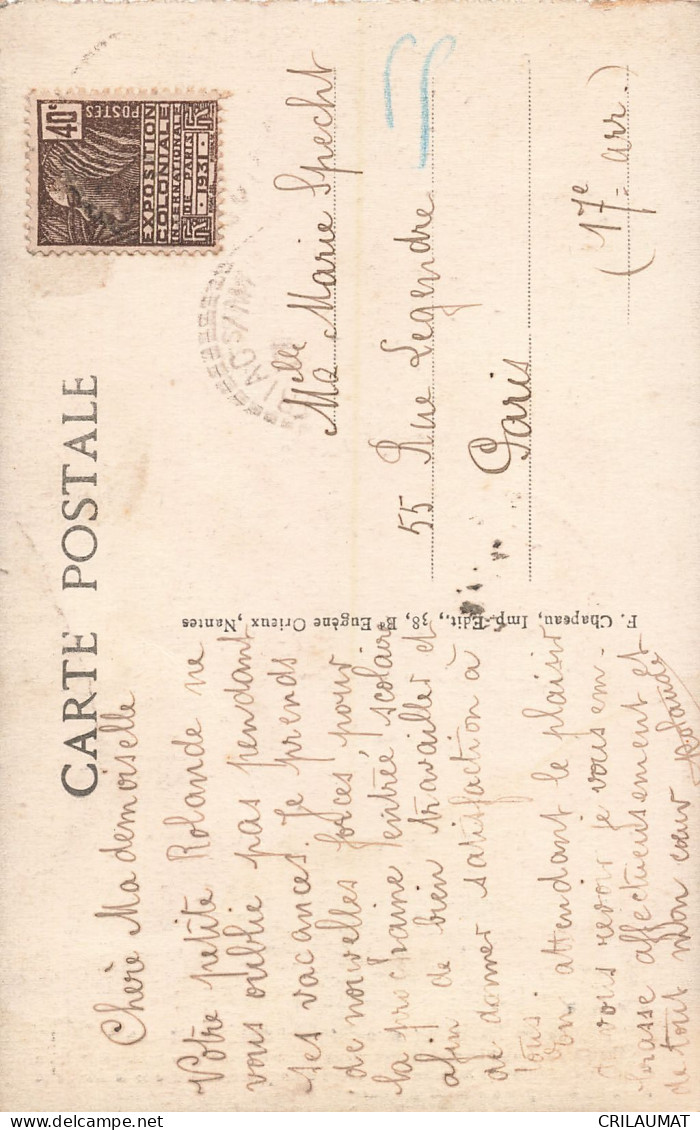 CARTE POSTALE
Chère Mademoiselle
Votre petite Rolande ne
vous oublie pas pendant
ses vacances. Je prends
de nouvelles forces, pour
la prochaine rentrée scolaire
afin de bien travailler et
de donner satisfaction à
tous.
En attendant le plaisir
de vous revoir je vous em-
brasse affectueusement et
de tout mon cœur Rolande
F. Chapeau, Imp.-Edit., 38, Bd Eugène Orieux, Nantes
40c
POSTES
EXPOSITION
COLONIALE
INTERNATIONALE
DE PARIS
1931
Melle Marie Specht
55 Rue Legendre
Paris
(17e arr.)
CRILAUMAT